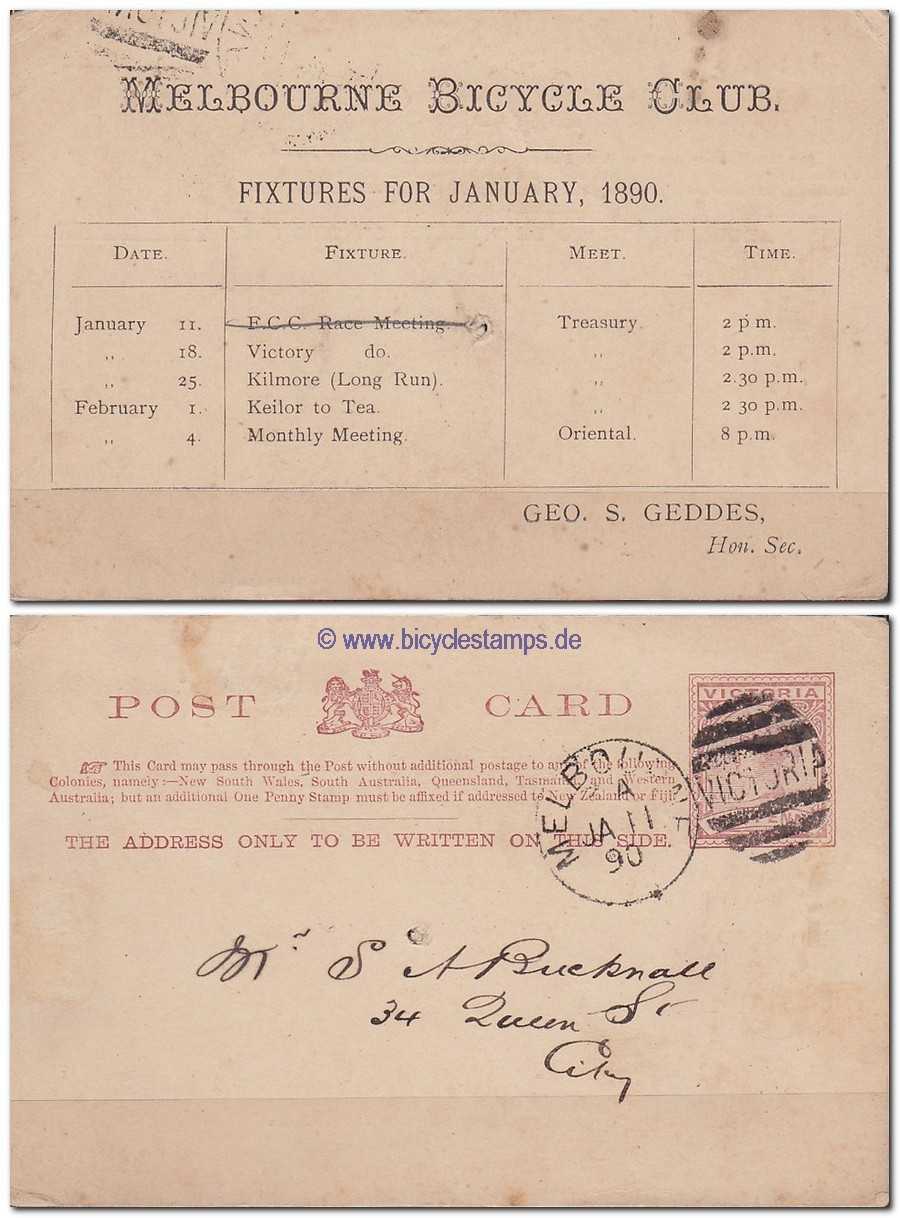 MELBOURNE BICYCLE CLUB.
FIXTURES FOR JANUARY, 1890.
DATE. FIXTURE. MEET. TIME.
January 11. F.C.C. Race Meeting. Treasury. 2 p m.
,, 18. Victory do. ,, 2 p.m.
,, 25. Kilmore (Long Run). ,, 2.30 p.m.
February 1. Keilor to Tea. ,, 2 30 p.m.
,, 4. Monthly Meeting. Oriental. 8 p.m.
GEO. S. GEDDES,
Hon. Sec.
© www.bicyclestamps.de
POST CARD
VICTORIA
☞ This Card may pass through the Post without additional postage to any of the following
Colonies, namely:—New South Wales, South Australia, Queensland, Tasmania and Western
Australia; but an additional One Penny Stamp must be affixed if addressed to New Zealand or Fiji.
THE ADDRESS ONLY TO BE WRITTEN ON THIS SIDE.
MELBOURNE
A
JA 11
90
VICTORIA
Mr. S A Bucknall
34 Queen St
City